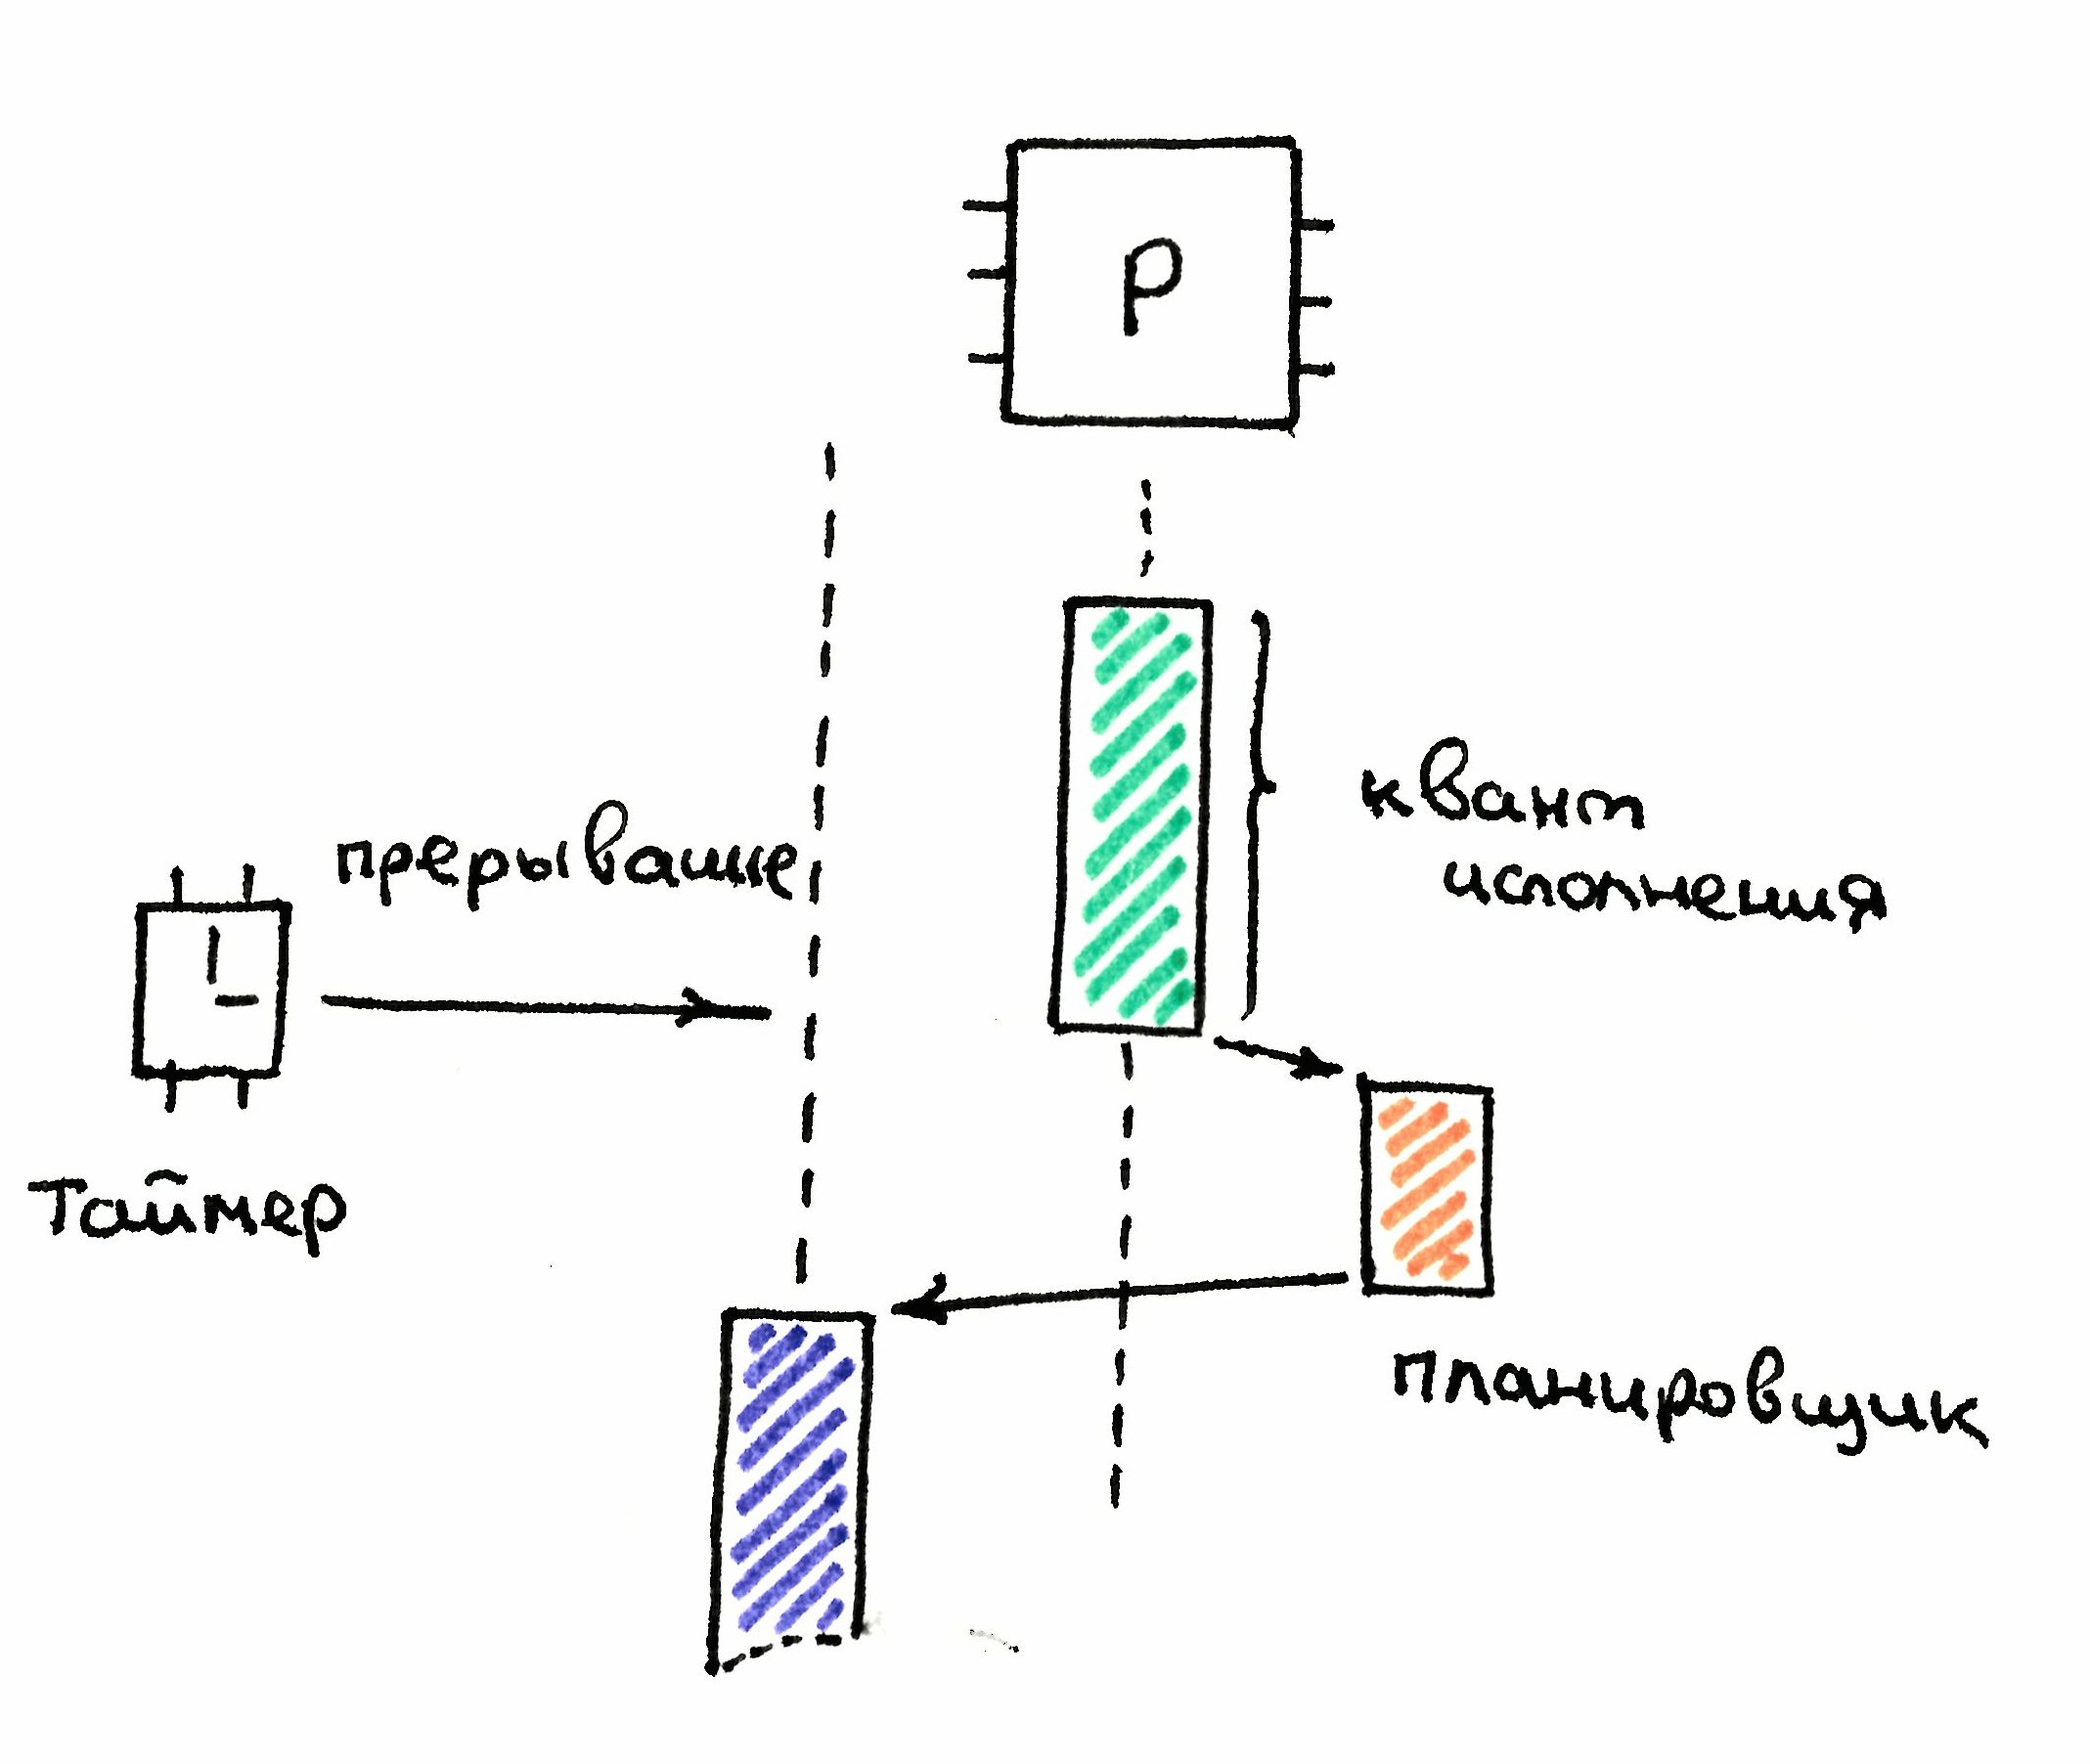 P
квант
исполнения
прерывание
Таймер
планировщик